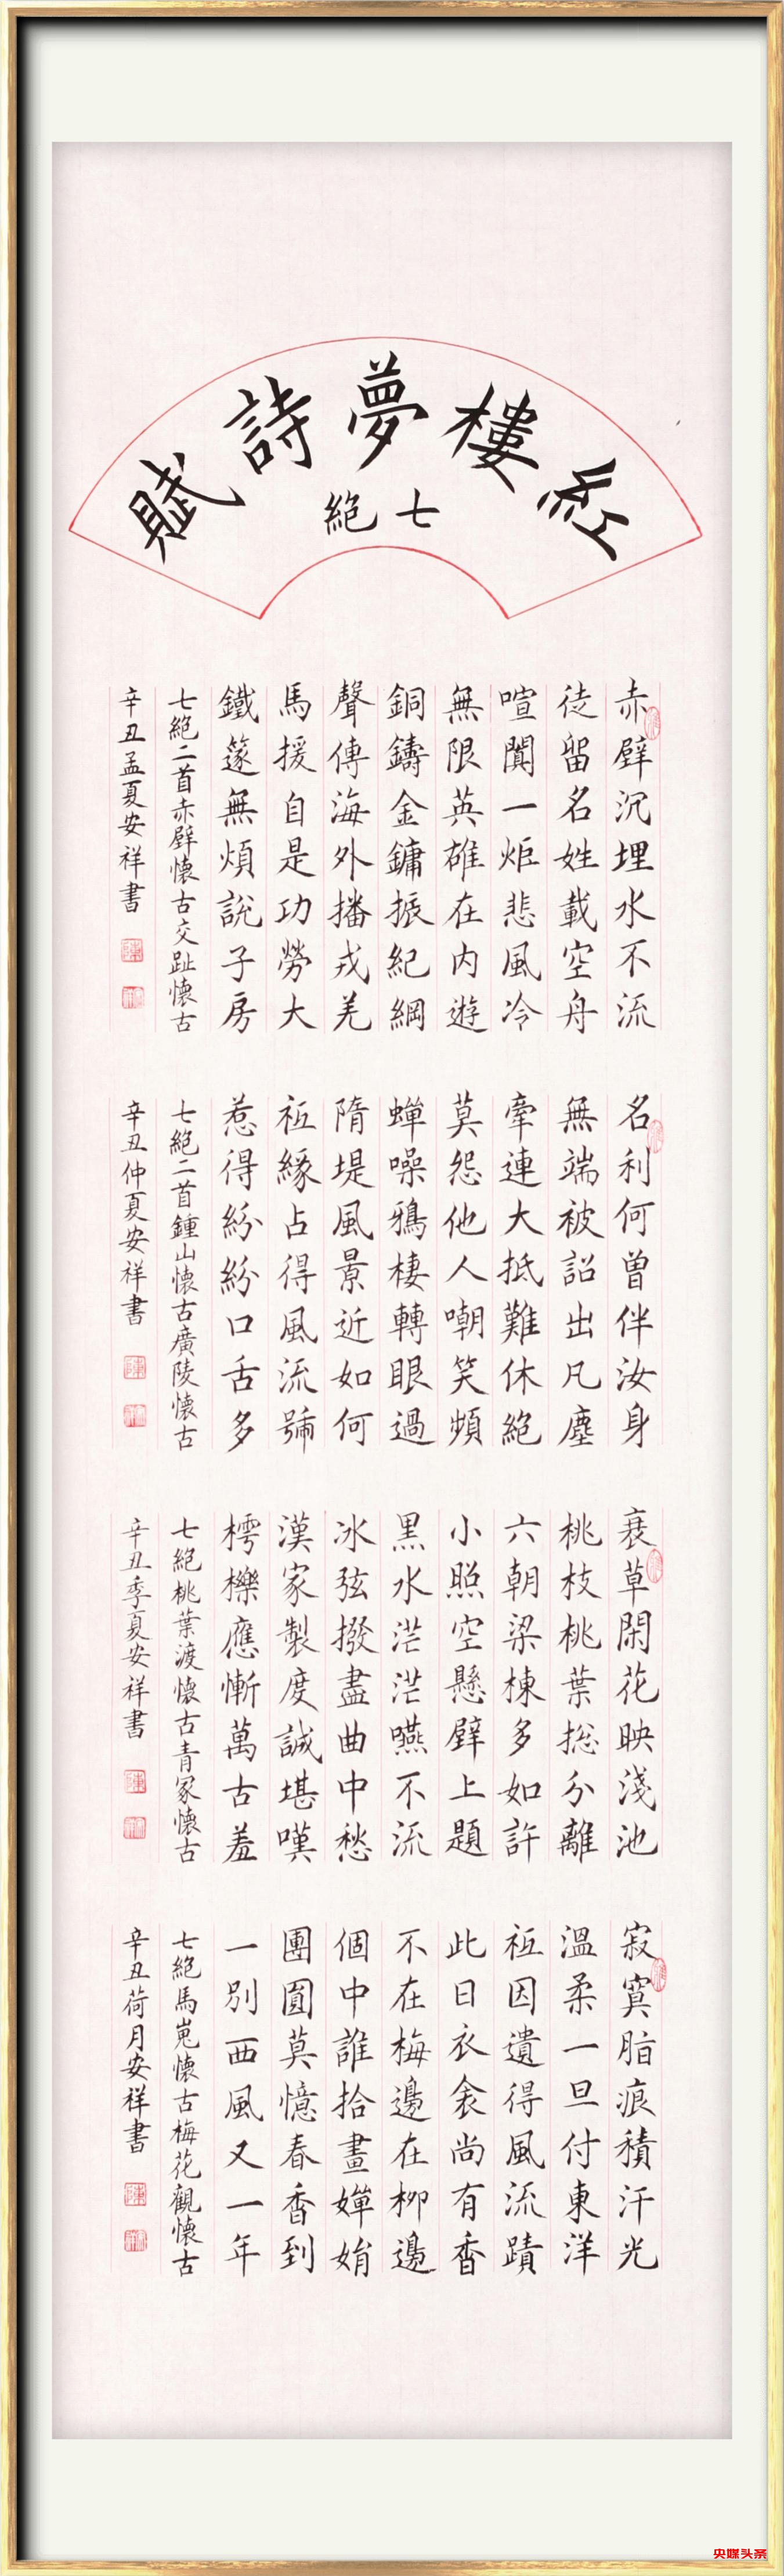 紅樓夢詩賦
七絕
赤壁沉埋水不流
徒留名姓載空舟
喧闐一炬悲風冷
無限英雄在內遊
銅鑄金鏞振紀綱
聲傳海外播戎羌
馬援自是功勞大
鐵篴無煩說子房
七絕二首赤壁懷古交趾懷古
辛丑孟夏安祥書
名利何曾伴汝身
無端被詔出凡塵
牽連大抵難休絕
莫怨他人嘲笑頻
蟬噪鴉棲轉眼過
隋堤風景近如何
衹緣占得風流號
惹得紛紛口舌多
七絕二首鍾山懷古廣陵懷古
辛丑仲夏安祥書
衰草閑花映淺池
桃枝桃葉總分離
六朝梁棟多如許
小照空懸壁上題
黑水茫茫嚥不流
冰弦撥盡曲中愁
漢家製度誠堪嘆
樗櫟應慚萬古羞
七絕桃葉渡懷古青冢懷古
辛丑季夏安祥書
寂寞脂痕積汗光
溫柔一旦付東洋
衹因遺得風流蹟
此日衣衾尚有香
不在梅邊在柳邊
個中誰拾畫嬋娟
團圓莫憶春香到
一別西風又一年
七絕馬嵬懷古梅花觀懷古
辛丑荷月安祥書
央媒头条